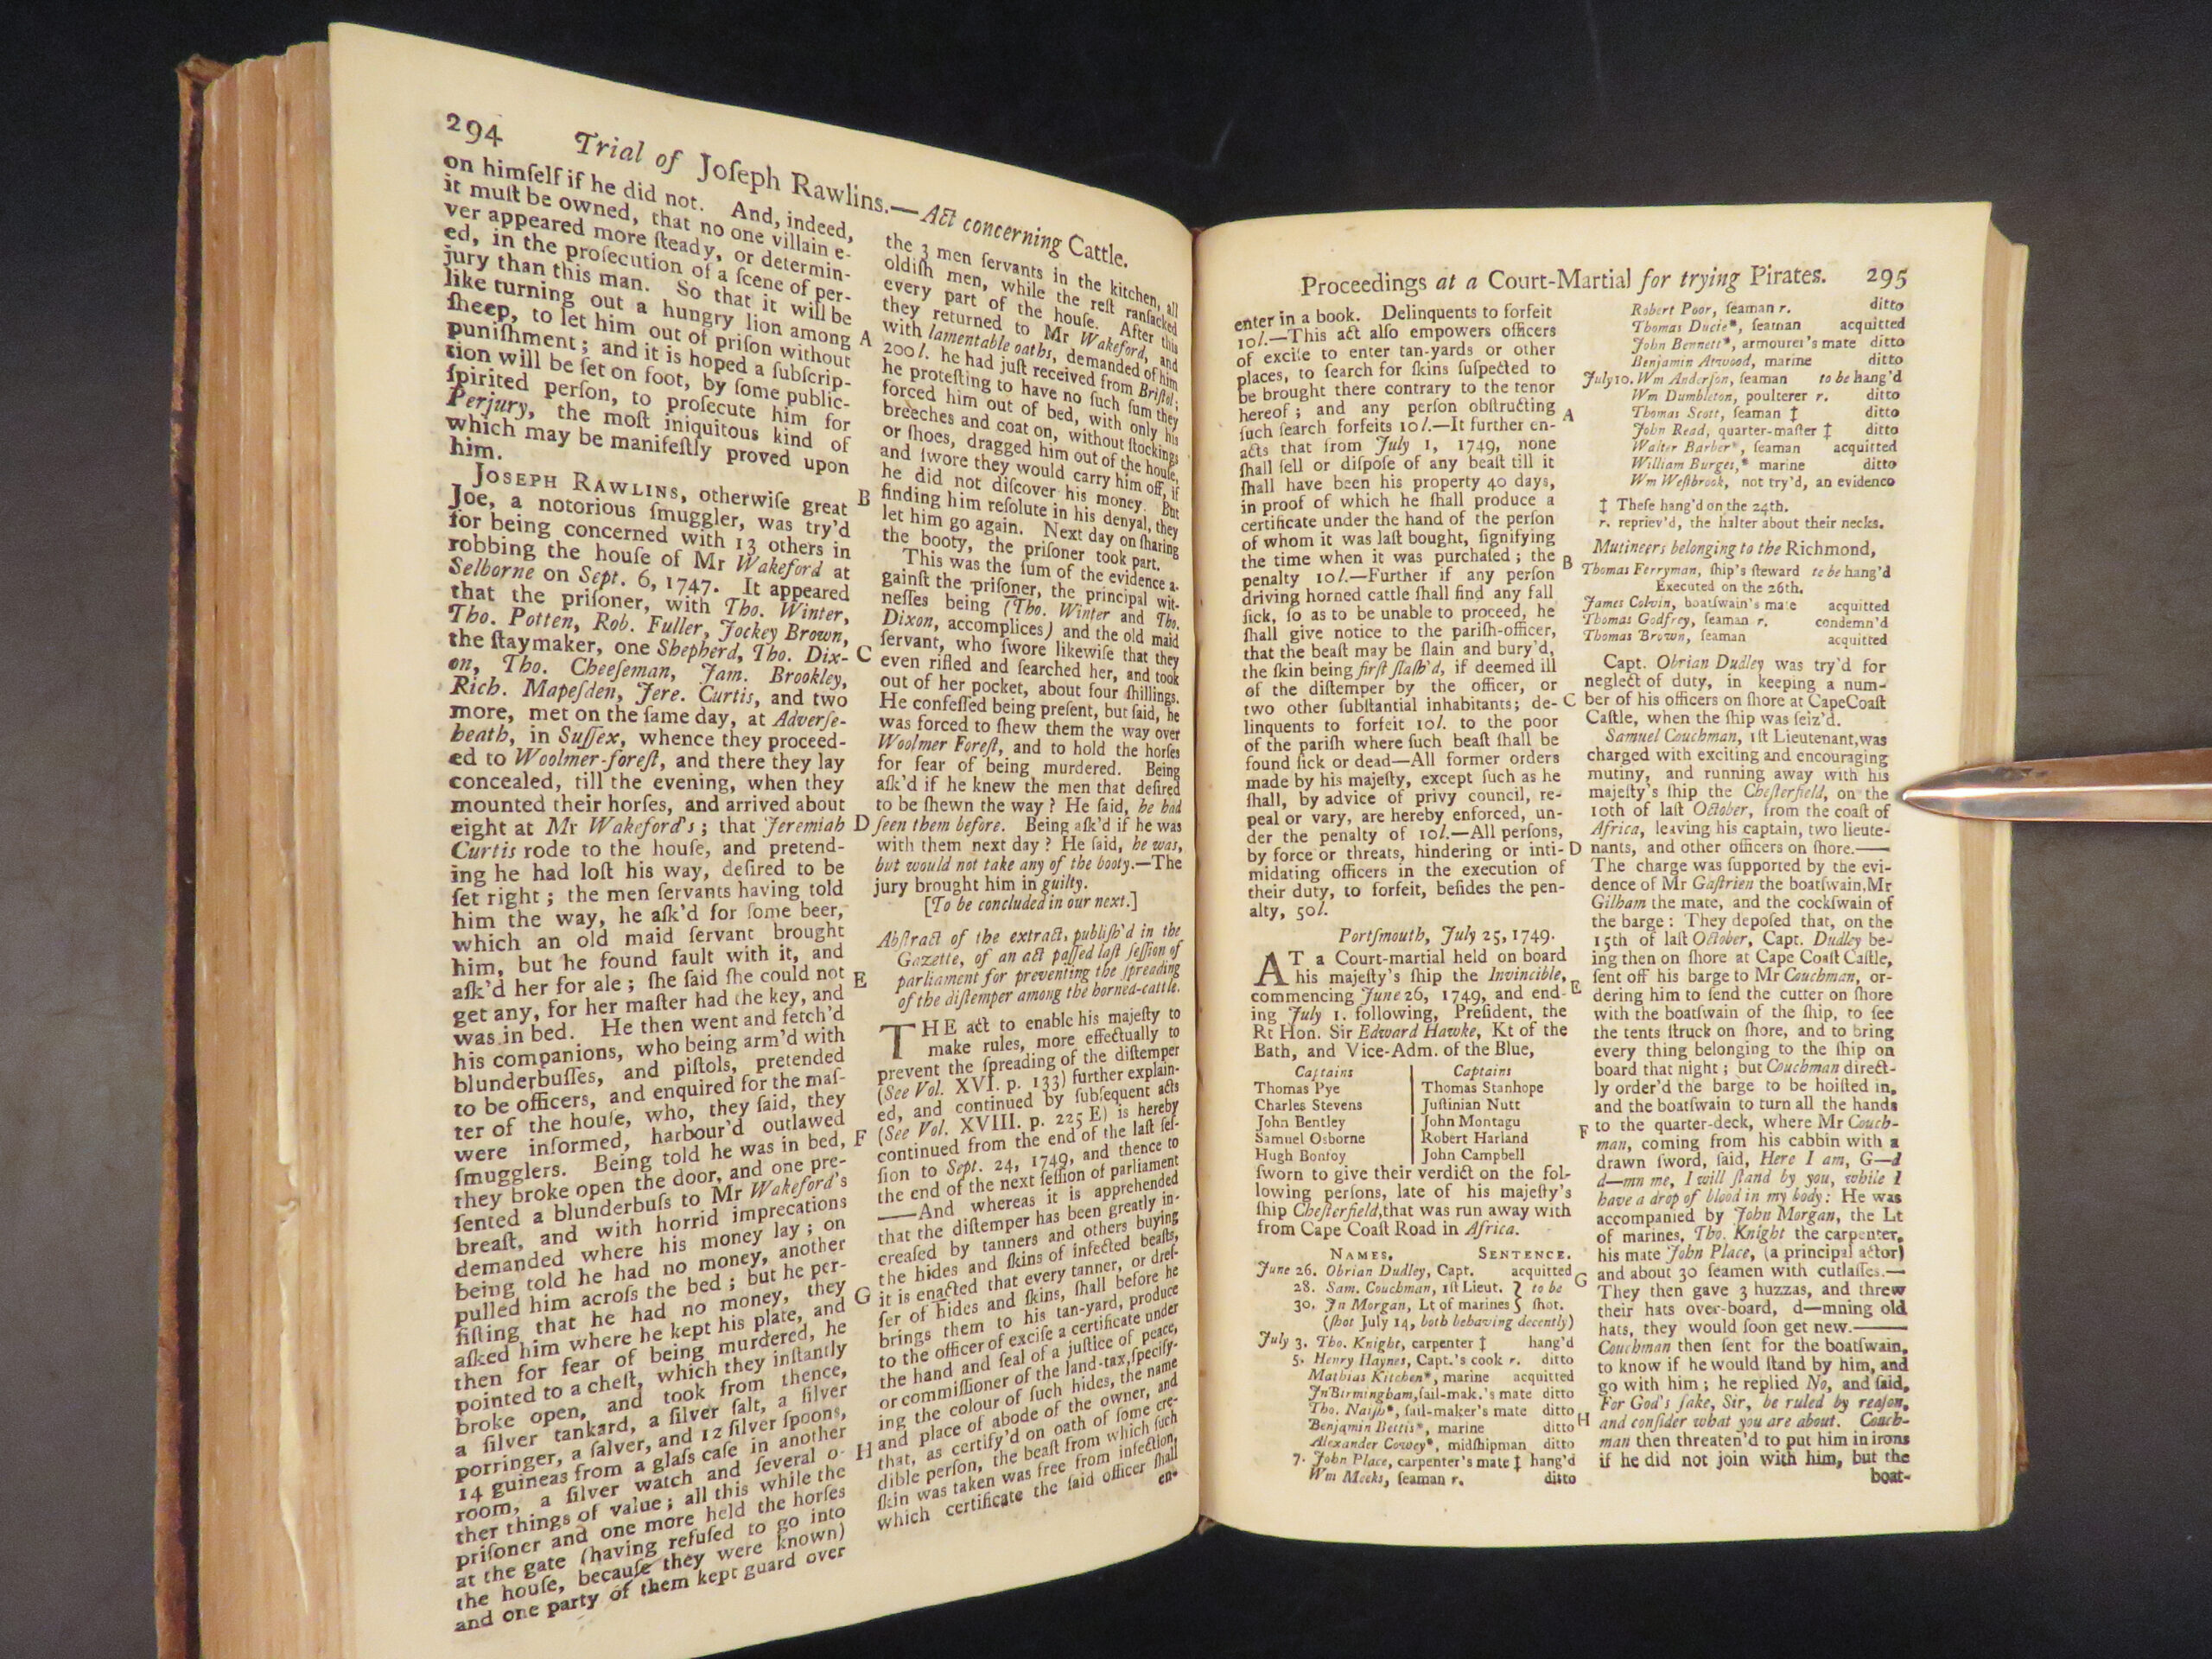 294 Trial of Joſeph Rawlins.—Act concerning Cattle.
on himſelf if he did not. And, indeed,
it muſt be owned, that no one villain e-
ver appeared more ſteady, or determin-
ed, in the proſecution of a ſcene of per-
jury than this man. So that it will be
like turning out a hungry lion among
ſheep, to let him out of priſon without
puniſhment; and it is hoped a ſubſcrip-
tion will be ſet on foot, by ſome public-
ſpirited perſon, to proſecute him for
Perjury, the moſt iniquitous kind of
which may be manifeſtly proved upon
him.
JOSEPH RAWLINS, otherwiſe great
Joe, a notorious ſmuggler, was try'd
for being concerned with 13 others in
robbing the houſe of Mr Wakeford at
Selborne on Sept. 6, 1747. It appeared
that the priſoner, with Tho. Winter,
Tho. Potten, Rob. Fuller, Jockey Brown,
the ſtaymaker, one Shepherd, Tho. Dix-
on, Tho. Cheeſeman, Jam. Brookley,
Rich. Mapeſden, Jere. Curtis, and two
more, met on the ſame day, at Adverſe-
heath, in Suſſex, whence they proceed-
ed to Woolmer-foreſt, and there they lay
concealed, till the evening, when they
mounted their horſes, and arrived about
eight at Mr Wakeford's; that Jeremiah
Curtis rode to the houſe, and pretend-
ing he had loſt his way, deſired to be
ſet right; the men ſervants having told
him the way, he aſk'd for ſome beer,
which an old maid ſervant brought
him, but he found fault with it, and
aſk'd her for ale; ſhe ſaid ſhe could not
get any, for her maſter had the key, and
was in bed. He then went and fetch'd
his companions, who being arm'd with
blunderbuſſes, and piſtols, pretended
to be officers, and enquired for the maſ-
ter of the houſe, who, they ſaid, they
were informed, harbour'd outlawed
ſmugglers. Being told he was in bed,
they broke open the door, and one pre-
ſented a blunderbuſs to Mr Wakeford's
breaſt, and with horrid imprecations
demanded where his money lay; on
being told he had no money, another
pulled him acroſs the bed; but he per-
ſiſting that he had no money, they
aſked him where he kept his plate, and
then for fear of being murdered, he
pointed to a cheſt, which they inſtantly
broke open, and took from thence,
a ſilver tankard, a ſilver ſalt, a ſilver
porringer, a ſalver, and 12 ſilver ſpoons,
14 guineas from a glaſs caſe in another
room, a ſilver watch and ſeveral o-
ther things of value; all this while the
priſoner and one more held the horſes
at the gate (having refuſed to go into
the houſe, becauſe they were known)
and one party of them kept guard over
A
B
C
D
E
F
G
H
the 3 men ſervants in the kitchen, all
oldiſh men, while the reſt ranſacked
every part of the houſe. After this
they returned to Mr Wakeford, and
with lamentable oaths, demanded of him
200 l. he had juſt received from Briſtol;
he proteſting to have no ſuch ſum they
forced him out of bed, with only his
breeches and coat on, without ſtockings
or ſhoes, dragged him out of the houſe,
and ſwore they would carry him off, if
he did not diſcover his money. But
finding him reſolute in his denyal, they
let him go again. Next day on ſharing
the booty, the priſoner took part.
This was the ſum of the evidence a-
gainſt the priſoner, the principal wit-
neſſes being (Tho. Winter and Tho.
Dixon, accomplices) and the old maid
ſervant, who ſwore likewiſe that they
even rifled and ſearched her, and took
out of her pocket, about four ſhillings.
He confeſſed being preſent, but ſaid, he
was forced to ſhew them the way over
Woolmer Foreſt, and to hold the horſes
for fear of being murdered. Being
aſk'd if he knew the men that deſired
to be ſhewn the way? He ſaid, he had
ſeen them before. Being aſk'd if he was
with them next day? He ſaid, he was,
but would not take any of the booty.—The
jury brought him in guilty.
[To be concluded in our next.]
Abſtract of the extract, publiſh'd in the
Gazette, of an act paſſed laſt ſeſſion of
parliament for preventing the ſpreading
of the diſtemper among the horned-cattle.
THE act to enable his majeſty to
make rules, more effectually to
prevent the ſpreading of the diſtemper
(See Vol. XVI. p. 133) further explain-
ed, and continued by ſubſequent acts
(See Vol. XVIII. p. 225 E) is hereby
continued from the end of the laſt ſeſ-
ſion to Sept. 24, 1749, and thence to
the end of the next ſeſſion of parliament
——And whereas it is apprehended
that the diſtemper has been greatly in-
creaſed by tanners and others buying
the hides and ſkins of infected beaſts,
it is enacted that every tanner, or dreſ-
ſer of hides and ſkins, ſhall before he
brings them to his tan-yard, produce
to the officer of exciſe a certificate under
the hand and ſeal of a juſtice of peace,
or commiſſioner of the land-tax, ſpecify-
ing the colour of ſuch hides, the name
and place of abode of the owner, and
that, as certify'd on oath of ſome cre-
dible perſon, the beaſt from which ſuch
ſkin was taken was free from infection,
which certificate the ſaid officer ſhall
en-
Proceedings at a Court-Martial for trying Pirates. 295
enter in a book. Delinquents to forfeit
10l.—This act alſo empowers officers
of exciſe to enter tan-yards or other
places, to ſearch for ſkins ſuſpected to
be brought there contrary to the tenor
hereof; and any perſon obſtructing
ſuch ſearch forfeits 10l.—It further en-
acts that from July 1, 1749, none
ſhall ſell or diſpoſe of any beaſt till it
ſhall have been his property 40 days,
in proof of which he ſhall produce a
certificate under the hand of the perſon
of whom it was laſt bought, ſignifying
the time when it was purchaſed; the
penalty 10l.—Further if any perſon
driving horned cattle ſhall find any fall
ſick, ſo as to be unable to proceed, he
ſhall give notice to the pariſh-officer,
that the beaſt may be ſlain and bury'd,
the ſkin being firſt ſlaſh'd, if deemed ill
of the diſtemper by the officer, or
two other ſubſtantial inhabitants; de-
linquents to forfeit 10l. to the poor
of the pariſh where ſuch beaſt ſhall be
found ſick or dead—All former orders
made by his majeſty, except ſuch as he
ſhall, by advice of privy council, re-
peal or vary, are hereby enforced, un-
der the penalty of 10l.—All perſons,
by force or threats, hindering or inti-
midating officers in the execution of
their duty, to forfeit, beſides the pen-
alty, 50l.
Portſmouth, July 25, 1749.
AT a Court-martial held on board
his majeſty's ſhip the Invincible,
commencing June 26, 1749, and end-
ing July 1. following, Preſident, the
Rt Hon. Sir Edward Hawke, Kt of the
Bath, and Vice-Adm. of the Blue,
Captains Captains
Thomas Pye Thomas Stanhope
Charles Stevens Juſtinian Nutt
John Bentley John Montagu
Samuel Osborne Robert Harland
Hugh Bonfoy John Campbell
ſworn to give their verdict on the fol-
lowing perſons, late of his majeſty's
ſhip Cheſterfield, that was run away with
from Cape Coaſt Road in Africa.
NAMES. SENTENCE.
June 26. Obrian Dudley, Capt. acquitted
28. Sam. Couchman, 1ſt Lieut. } to be
30. Jn Morgan, Lt of marines } ſhot.
(ſhot July 14, both behaving decently)
July 3. Tho. Knight, carpenter ‡ hang'd
5. Henry Haynes, Capt.'s cook r. ditto
Mathias Kitchen*, marine acquitted
Jn Birmingham, ſail-mak.'s mate ditto
Tho. Naiſh*, ſail-maker's mate ditto
Benjamin Bettis*, marine ditto
Alexander Cowey*, midſhipman ditto
7. John Place, carpenter's mate ‡ hang'd
Wm Meeks, ſeaman r. ditto
A
B
C
D
E
F
G
H
Robert Poor, ſeaman r. ditto
Thomas Ducie*, ſeaman acquitted
John Bennett*, armourer's mate ditto
Benjamin Atwood, marine ditto
July 10. Wm Anderſon, ſeaman to be hang'd
Wm Dumbleton, poulterer r. ditto
Thomas Scott, ſeaman ‡ ditto
John Read, quarter-maſter ‡ ditto
Walter Barber*, ſeaman acquitted
William Burges,* marine ditto
Wm Weſtbrook, not try'd, an evidence
‡ Theſe hang'd on the 24th.
r. repriev'd, the halter about their necks.
Mutineers belonging to the Richmond,
Thomas Ferryman, ſhip's ſteward to be hang'd
Executed on the 26th.
James Colvin, boatſwain's mate acquitted
Thomas Godfrey, ſeaman r. condemn'd
Thomas Brown, ſeaman acquitted
Capt. Obrian Dudley was try'd for
neglect of duty, in keeping a num-
ber of his officers on ſhore at Cape Coaſt
Caſtle, when the ſhip was ſeiz'd.
Samuel Couchman, 1ſt Lieutenant, was
charged with exciting and encouraging
mutiny, and running away with his
majeſty's ſhip the Cheſterfield, on the
10th of laſt October, from the coaſt of
Africa, leaving his captain, two lieute-
nants, and other officers on ſhore.——
The charge was ſupported by the evi-
dence of Mr Gaſtrien the boatſwain, Mr
Gilham the mate, and the cockſwain of
the barge: They depoſed that, on the
15th of laſt October, Capt. Dudley be-
ing then on ſhore at Cape Coaſt Caſtle,
ſent off his barge to Mr Couchman, or-
dering him to ſend the cutter on ſhore
with the boatſwain of the ſhip, to ſee
the tents ſtruck on ſhore, and to bring
every thing belonging to the ſhip on
board that night; but Couchman direct-
ly order'd the barge to be hoiſted in,
and the boatſwain to turn all the hands
to the quarter-deck, where Mr Couch-
man, coming from his cabbin with a
drawn ſword, ſaid, Here I am, G—d
d—mn me, I will ſtand by you, while I
have a drop of blood in my body: He was
accompanied by John Morgan, the Lt
of marines, Tho. Knight the carpenter,
his mate John Place, (a principal actor)
and about 30 ſeamen with cutlaſſes.—
They then gave 3 huzzas, and threw
their hats over-board, d—mning old
hats, they would ſoon get new.——
Couchman then ſent for the boatſwain,
to know if he would ſtand by him, and
go with him; he replied No, and ſaid,
For God's ſake, Sir, be ruled by reaſon,
and conſider what you are about. Couch-
man then threaten'd to put him in irons
if he did not join with him, but the
boat-